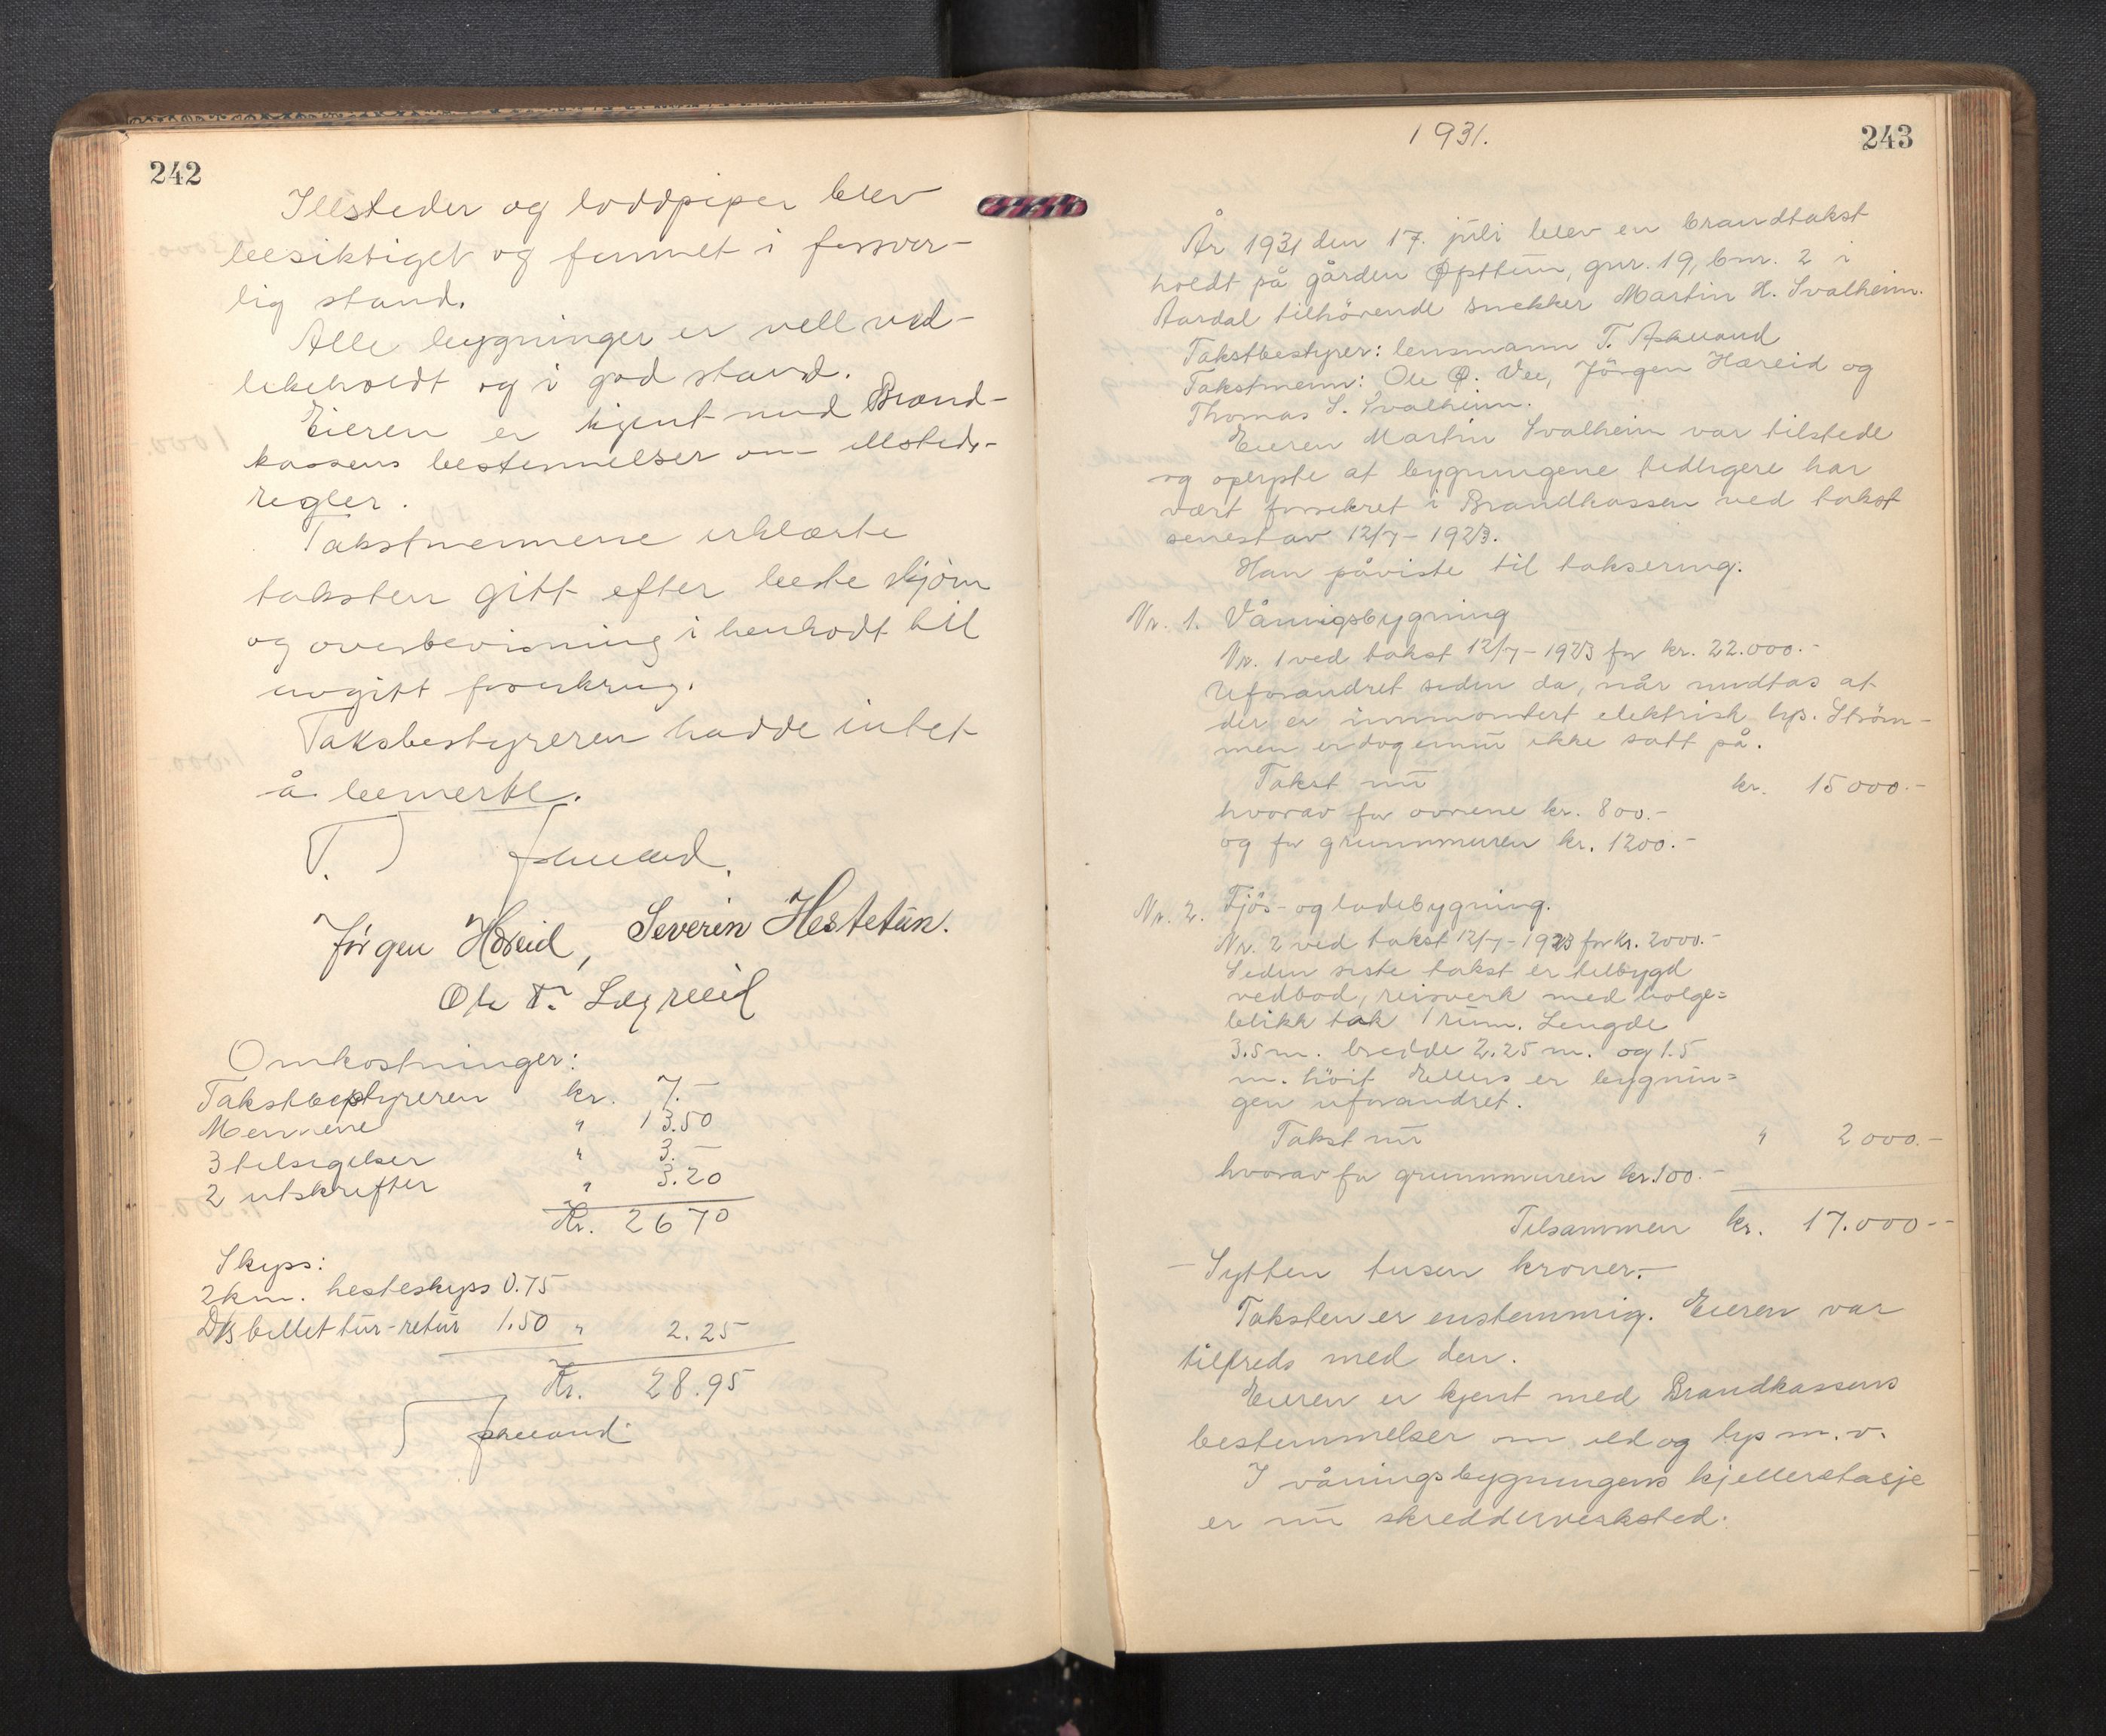 242
Illsteder og loddpiper blev
besiktiget og funnet i forsvar-
lig stand.
Alle bygninger er vell ved-
likeholdt og i god stand.
Eieren er kjent med Brand-
kassens bestemmelser om illsteds-
regler.
Takstmennene erklærte
taksten gitt efter beste skjønn
og overbevisning i henhodt til
avgitt forsikring.
Taksbestyreren hadde intet
å bemerke.
T.
Jørgen Hæreid, Severin Hestetun.
Ole T. Lægreid
Omkostninger:
Takstbestyreren kr. 7.-
Mennene " 13.50
3 tilsigelser " 3.-
2 utskrifter " 3.20
Kr. 26 70
Skyss:
2 km. hesteskyss 0.75
D/S billet tur-retur 1.50 " 2.25
Kr. 28.95
1931.
243
År 1931 den 17. juli blev en brandtakst
holdt på gården Øfsttun, gnr. 19, bnr. 2 i
Aardal tilhörende snekker Martin H. Svalheim.
Takstbestyrer: lensmann T.
Takstmenn: Ole O. Vee, Jörgen Hæreid og
Thomas S. Svalheim.
Eieren Martin Svalheim var tilstede
og oplyste at bygningene tidligere har
vært forsikret i Brandkassen ved takst
senest av 12/7-1923.
Han påviste til taksering.
Nr. 1. Våningsbygning
Nr. 1 ved takst 12/7-1923 for kr. 22.000.-
Uforandret siden da, når undtas at
der er innmontert elektrisk lys. Ström-
men er dog ennu ikke satt på.
Takst nu kr. 15 000.-
hvorav for ovnene kr. 800.-
og for grunnmuren kr. 1200.-
Nr. 2. Fjös- og ladebygning.
Nr. 2 ved takst 12/7-1923 for kr. 2000.-
Siden siste takst er tilbygd
vedbod, reisverk med bølge=
blikk tak 1 rum. Lengde
3.5 m. bredde 2.25 m. og 1.5
m. höit. Ellers er bygnin=
gen uforandret.
Takst nu " 2 000.-
hvorav for grunnmuren kr. 100.-
Tilsammen kr. 17.000--
- Sytten tusen kroner.-
Taksten er enstemmig. Eieren var
tilfreds med den.
Eieren er kjent med Brandkassens
bestemmelser om ild og lys m. v.
I våningsbygningens kjelleretasje
er nu skredderverksted.